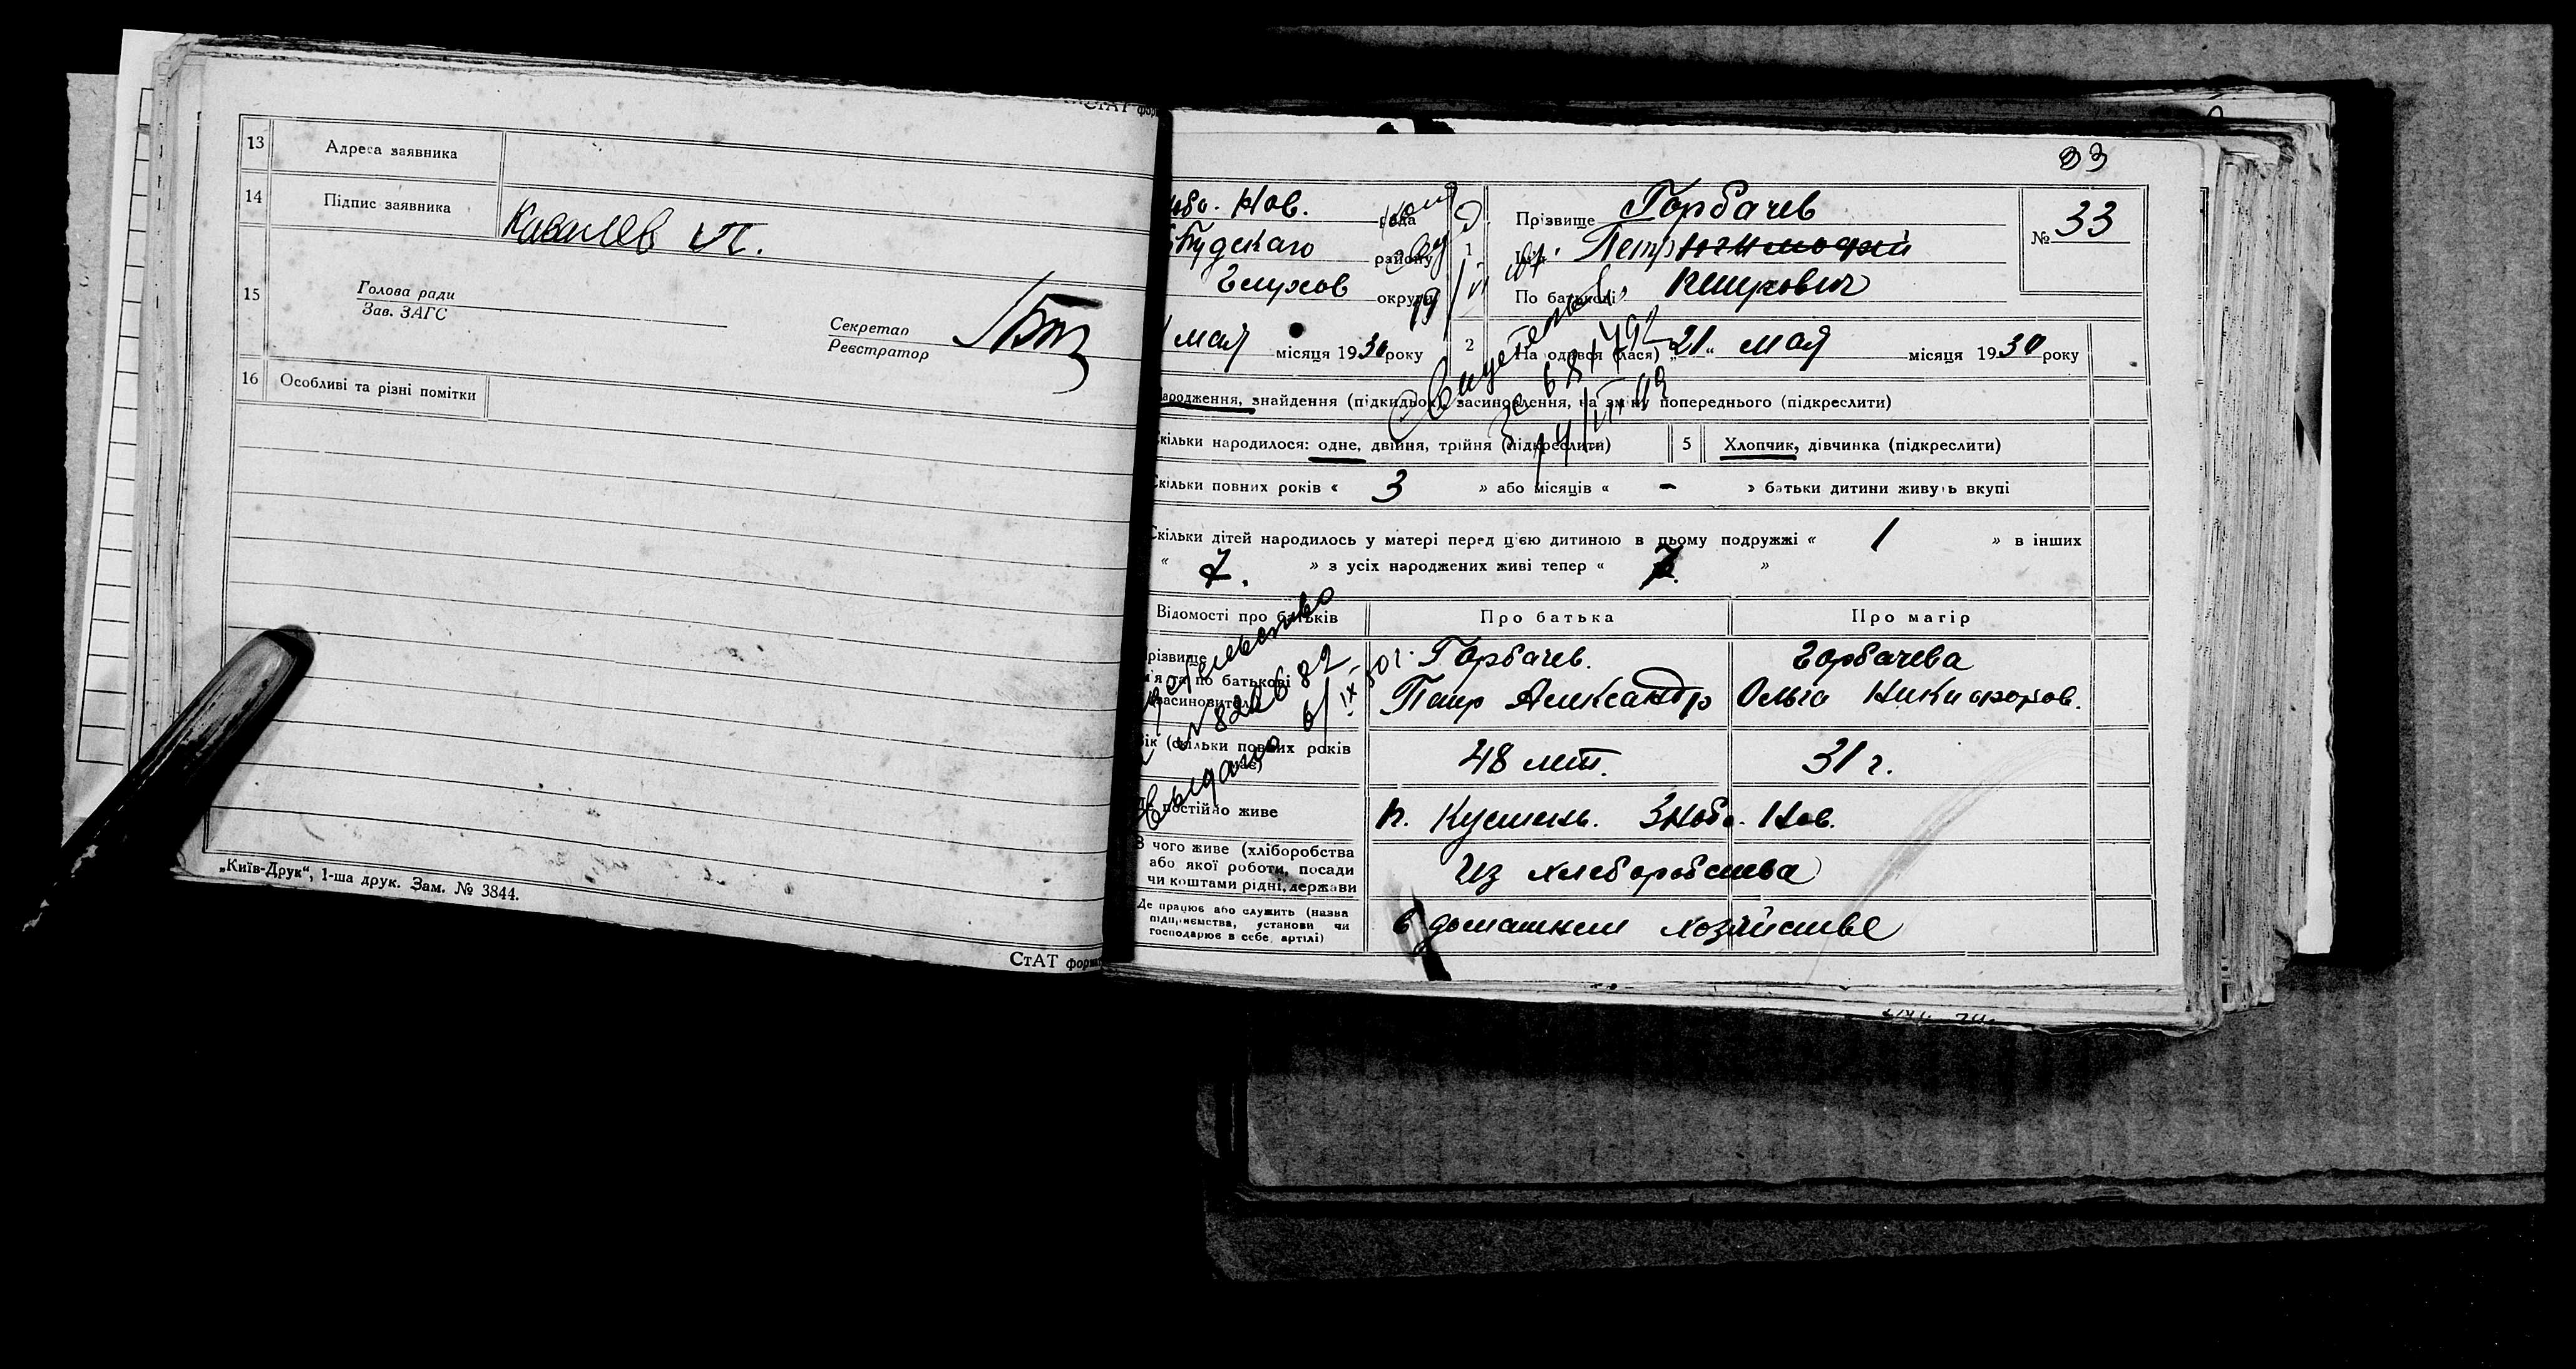 13 Адреса заявника
14 Підпис заявника Кавалев П.
15 Голова ради
Зав. ЗАГС
Секретар
Реєстратор
16 Особливі та різні помітки
„Київ-Друк“, 1-ша друк. Зам. № 3844.
СтАТ форм
33
Нов. рада
Глухов округи
мая місяця 1930 року
1 Прізвище Горбачев
Ім'я Петр
По батькові
№ 33
2 Народився (лася) „21“ мая місяця 1930 року
ародження, знайдення (підкидьок), засиновлення, на зміну попереднього (підкреслити)
кільки народилося: одне, двійня, трійня (підкреслити)
5 Хлопчик, дівчинка (підкреслити)
кільки повних років « 3 » або місяців « - » батьки дитини живуть вкупі
Скільки дітей народилось у матері перед цією дитиною в цьому подружжі « 1 » в інших
« 7. » з усіх народжених живі тепер « »
Відомості про батьків
Про батька
Про матір
різвище
м'я та по батькові
засиновителів
Горбачев.
Петр Александр
Горбачева
Ольга Никифоров.
ік (скільки повних років має)
48 лет.
31 г.
де постійно живе
Зноб. Нов.
З чого живе (хліборобства
або якої роботи, посади
чи коштами рідні, держави
Из хлеборобства
Де працює або служить (назва
підприємства, установи чи
господарює в себе, артілі)
в домашнем хозяйстве